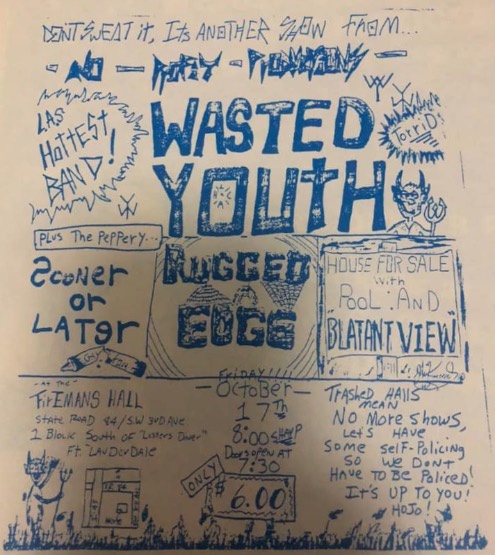 DON'T SWEAT it, Its ANOTHER SHOW FROM...
- NO - PROFIT - PRODUCTIONS -
LAS
HOTTEST
BAND!
WASTED
YOUTH
TORRID!
PLUS The PEPPERY...
SOONER
or
LATER
RUGGED
EDGE
HOUSE FOR SALE
with
POOL AND
"BLATANT VIEW"
- AT THE -
FirEMANS HALL
STATE ROAD 84/S.W 3RD AVE
1 Block South of "Lesters Diner"
Ft. LAUDerDALE
FRIDAY!!!!
- OCTOBER -
17Th
8:00 SHARP
Doors open AT
7:30
ONLY
$6.00
TRASHED HALLS
MEAN
No More shows,
LeTs HAVE
Some self-Policing
So We DonT
HAVE TO BE Policed!
IT's UP TO YOU!
HoJo!